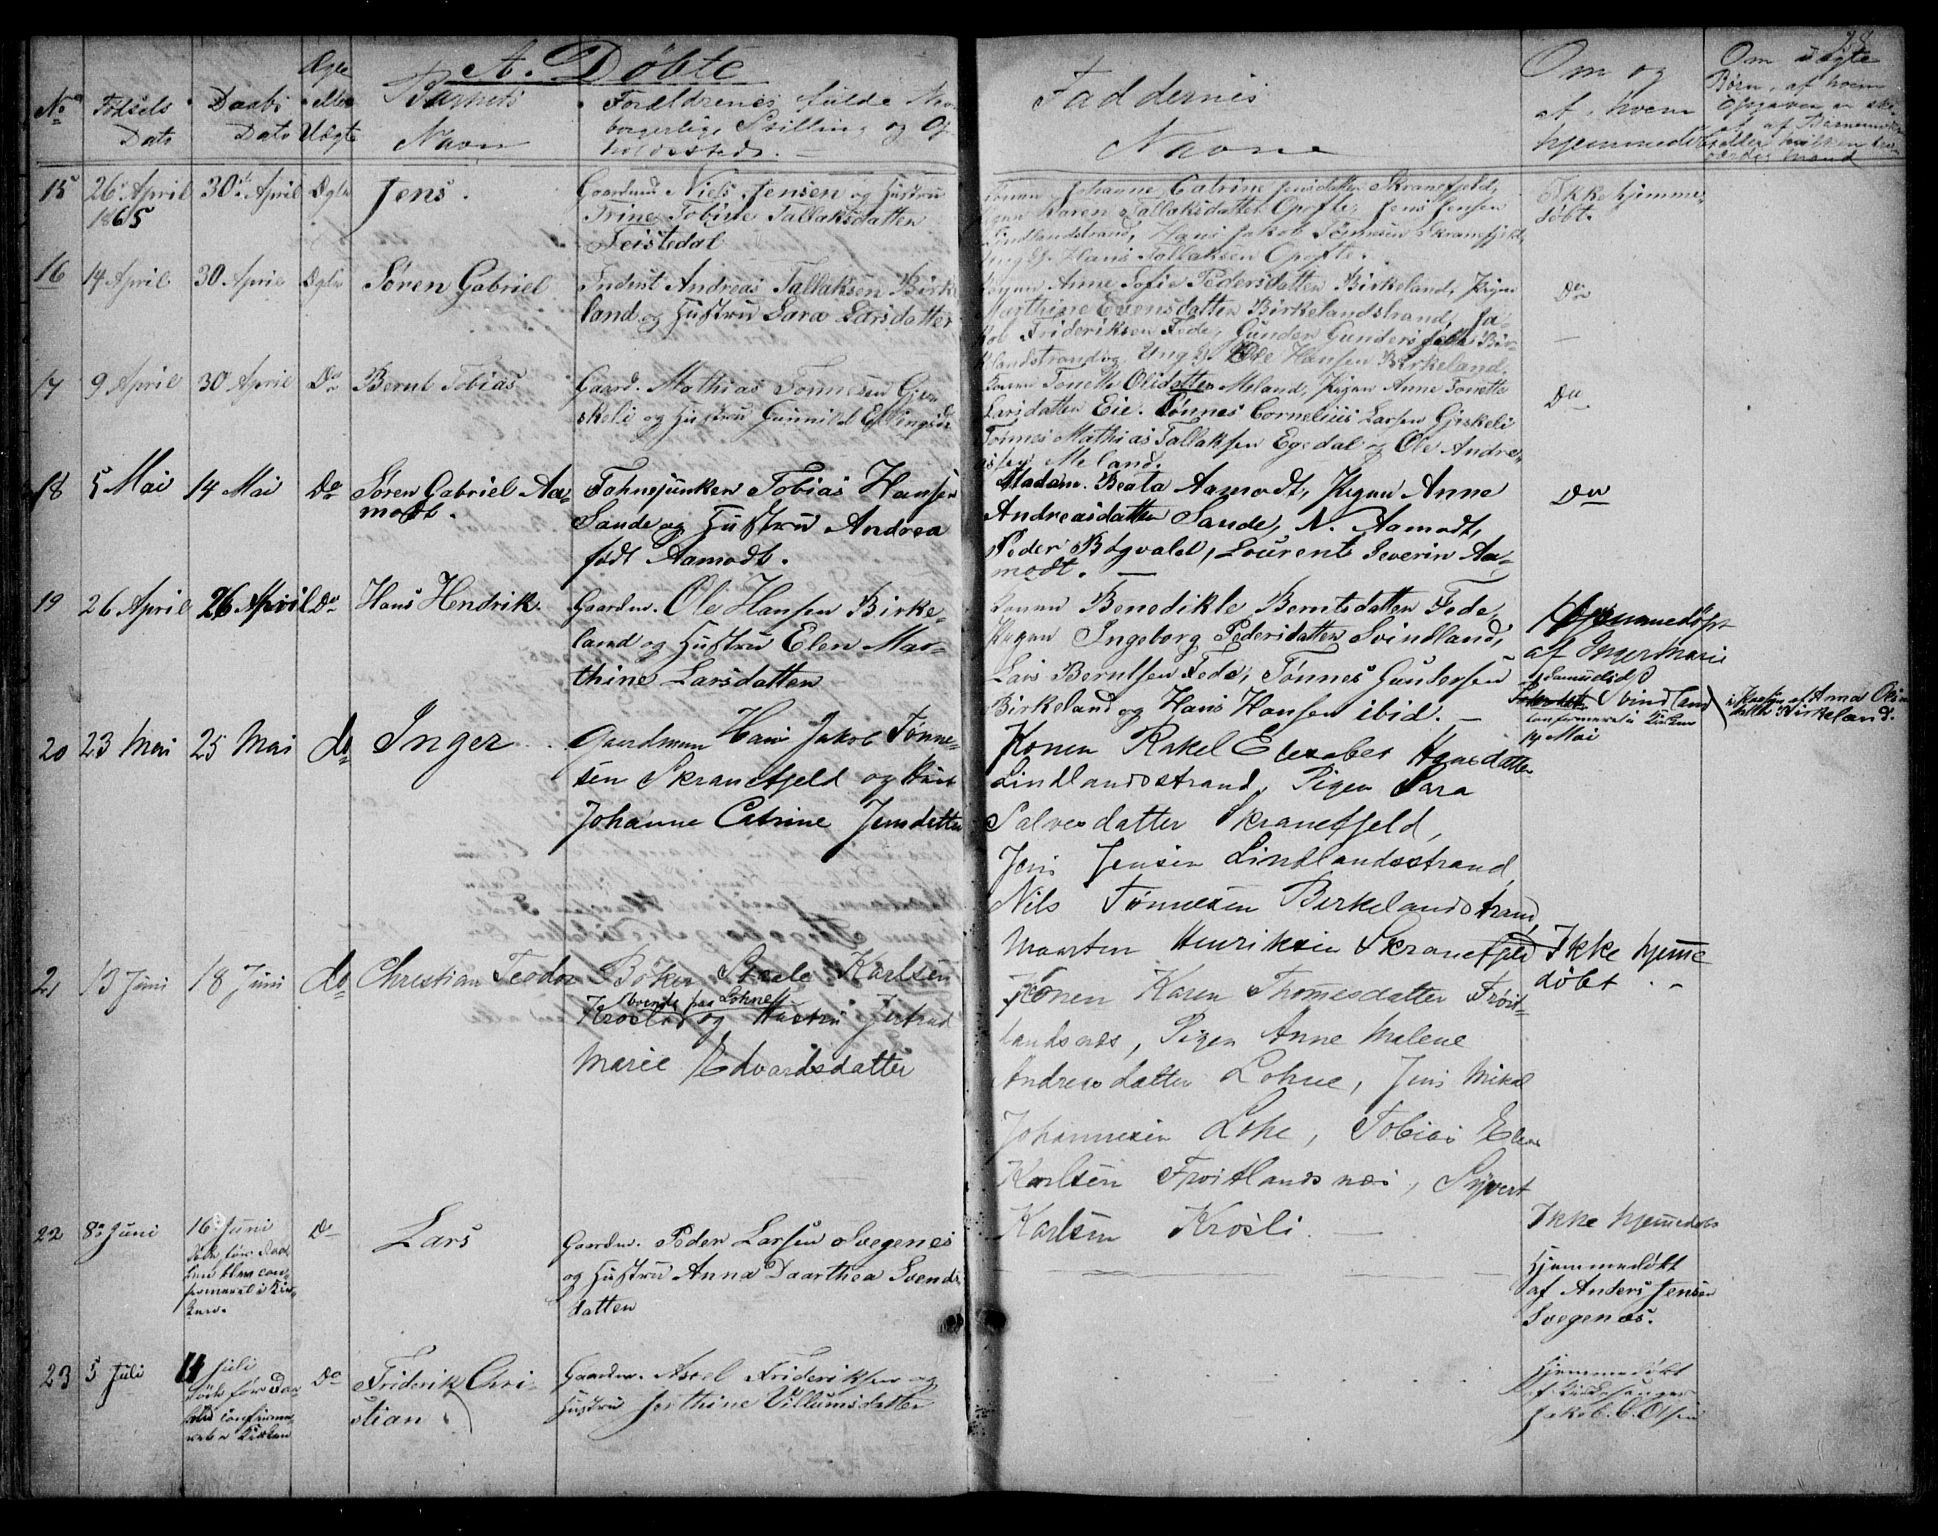 28
A. Døbte
No
Fødsels
Dato
Daabs
Dato
Ægte
eller
Uægte
Barnets
Navn
Forældrenes fulde Nav
borgerlige Stilling og Op
holdssted. —
Faddernes
Navne
Om og
af hvem
hjemmedøbt
Om uægte
Børn, af hvem
Opgaven er ske
15 26 April 30te April Ægte Jens.
1865
Gaardmd Niels Jensen og Hustru
Trine Tobine Tallaksdatter
Feistedal
Konen Johanne Catrine Jensdatter Skranefjeld,
Pigen Karen Tallaksdatter Opofte, Jens Jensen
Lindlandstrand, Hans Jakob Tønnesen Skranefjeld,
Ung K. Hans Tallaksen Opofte.
Ikke hjemme
døbt.
16 14 April 30 April Ægte Søren Gabriel
Inderst Andreas Tallaksen Birke
land og Hustru Sara Larsdatter
Pigen Anne Sofie Pedersdatter Birkeland, Pigen
Marthine Evensdatter Birkelandstrand, Ja-
kob Frideriksen Fede, Gunder Gundersen Bir-
kelandstrand og Ung K. Ole Hansen Birkeland.
Do
17 9 April 30 April Do Bernt Tobias
Gaard. Mathias Tønnesen Gjer
skeli og Hustru Gunnild Ellingsdr
Konen Tonette Olsdatter Meland, Pigen Anne Tonette
Larsdatter Eie. Tønnes Cornelius Larsen Gjerskeli
Tønnes Mathias Tallaksen Egedal og Ole Andre-
assen Meland.
Do
18 5 Mai 14 Mai Do Søren Gabriel Aa-
modt.
Fahnejunker Tobias Hansen
Sande og Hustru Andrea
født Aamodt.
Madam. Beata Aamodt, Pigen Anne
Andreasdatter Sande, N. Aamodt,
Peder Bøgvald, Lourents Severin Aa-
modt. —
Do
19 26 April 26 April Do Hans Hendrik
Gaardm. Ole Hansen Birke-
land og Hustru Elen Mar-
thine Larsdatter
Konen Benedikte Berntsdatter Fede,
Pigen Ingeborg Pedersdatter Svindland,
Lars Berntsen Fede, Tønnes Guntersen
Birkeland og Hans Hansen ibid. —
Hjemmedøbt
af Inger Marie
Samuelsd
Svindland
confirmeret i Kirken
14 Mai
af Anna Ols
Birkeland.
20 23 Mai 25 Mai do Inger
Gaardmann Hans Jakob Tønne-
sen Skranefjeld og Hust
Johanne Catrine Jensdatter
Konen Rakel Elesabet Hansdatter
Lindlandsstrand, Pigen Sara
Salvesdatter Skranefjeld,
Jens Jensen Lindlandsstrand,
Nils Tønnesen Birkelandstrand,
Maarten Henriksen Skranefjeld
Ikke hjemme
døbt. -
21 13 Juni 18 Juni do Christian Teodor
Bøker Staale Karlsen
boende paa Lohne
Krosli og Hustru Jertrud
Marie Edvardsdatter
Konen Karen Thomesdatter Frøit-
landsnes, Pigen Anne Malene
Andreasdatter Lohne, Jens Mikal
Johannesen Lohe, Tobias Elias
Karlsen Froitlandsnes, Syvert
Karlsen Krosli. —
Ikke hjemmedøbt
22 8de Juni 16 Juni Do Lars
confirmeret i Kir-
ken.
Gaardm. Peder Larsen Svegenes
og Hustru Anna Daarthea Svends
datter
Hjemmedøbt
af Anders Jensen
Svegenæs.
23 5 Juli 11 Juli Do Friderik Chri-
stian
Døde før Daa
ben confirme-
ret i Kirken
Gaardm. Axel Frideriksen og
Hustru Jorthine Villumsdatter
Hjemmedøbt
af Kirkesanger
Jakob. C. Olsen